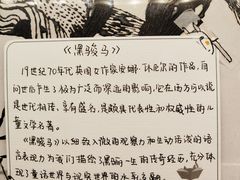 《黑骏马》
19世纪70年代英国女作家安娜·休厄尔的作品，自
问世后产生了极为广泛而深远的影响，它在西方可以说
是世代相传，享有盛名，是颇具代表性和权威性的儿
童文学名著。
《黑骏马》以细致入微的观察力和生动活泼的语
言表现力为我们描绘了黑驹一生的传奇经历，充分体现
了童话世界与现实世界的水乳交融